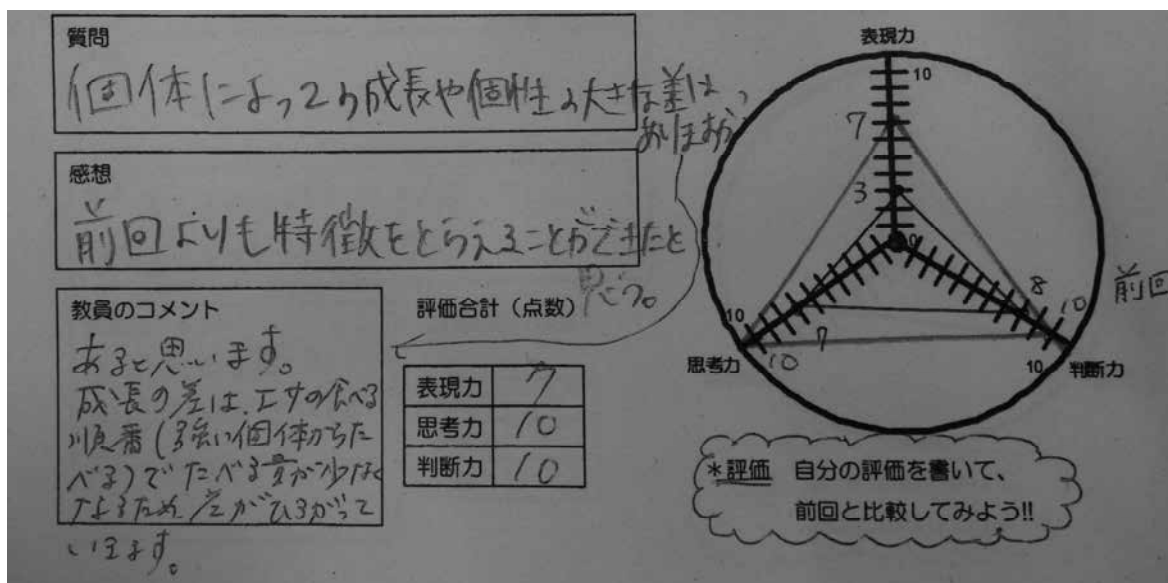 質問
個体によっての成長や個性の大きな差は
ありますか?
感想
前回よりも特徴をとらえることができたと
思う。
教員のコメント
あると思います。
成長の差は、エサの食べる
順番(強い個体からた
べる)でたべる量が少なく
なるため差がひろがって
います。
評価合計(点数)
表現力 7
思考力 10
判断力 10
表現力
10
7
3
0
8
10
前回
10
7
10
思考力
10
判断力
*評価 自分の評価を書いて、
前回と比較してみよう!!